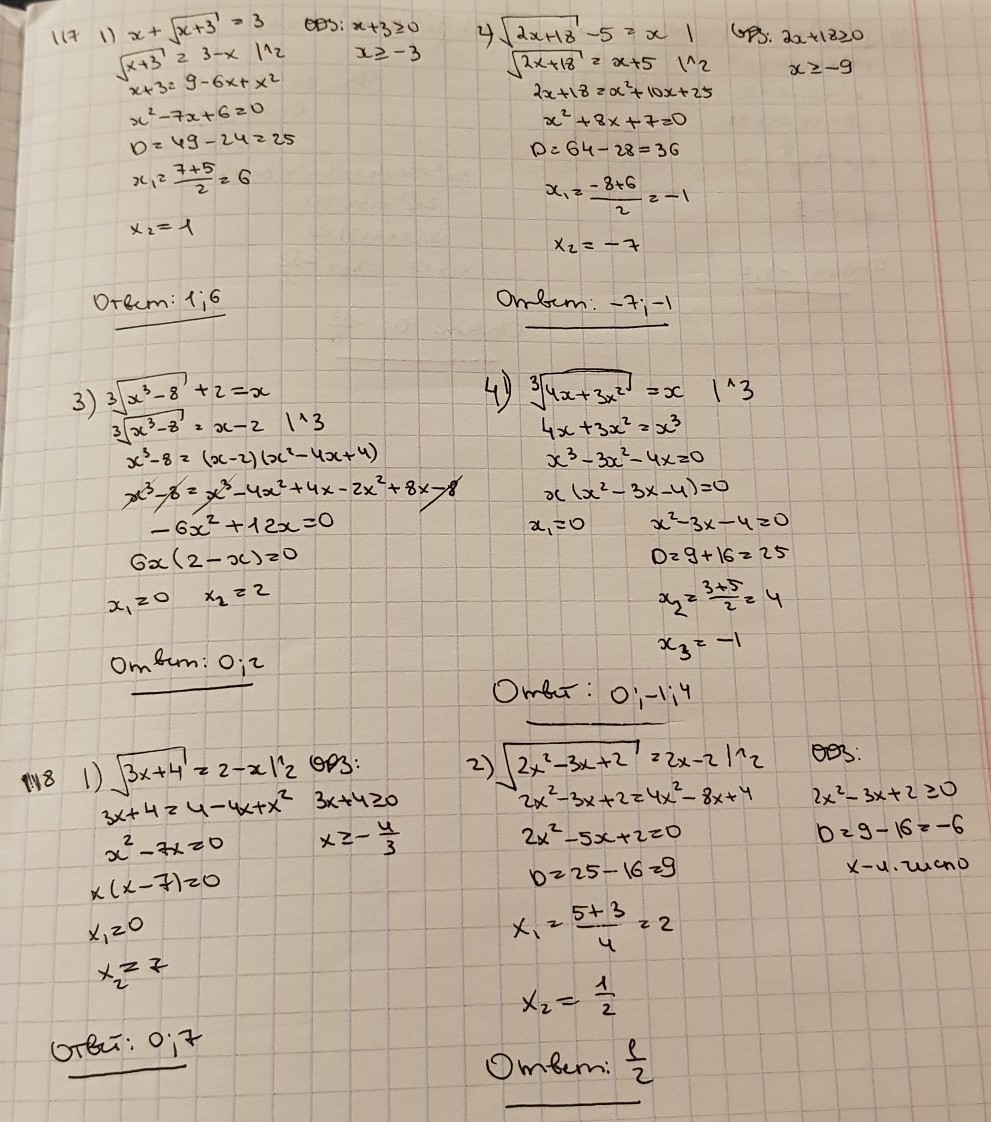 117 1) x + √(x+3) = 3 ОДЗ: x+3≥0
√(x+3) = 3-x |^2 x ≥ -3
x+3 = 9-6x+x²
x²-7x+6=0
D = 49-24=25
x₁ = (7+5)/2 = 6
x₂ = 1
Ответ: 1;6
2) √(2x+18) -5 = x | ОДЗ: 2x+18≥0
√(2x+18) = x+5 |^2 x ≥ -9
2x+18 = x²+10x+25
x²+8x+7=0
D = 64-28=36
x₁ = (-8+6)/2 = -1
x₂ = -7
Ответ: -7;-1
3) ³√(x³-8) +2 = x
³√(x³-8) = x-2 |^3
x³-8 = (x-2)(x²-4x+4)
x³-8 = x³-4x²+4x-2x²+8x-8
-6x²+12x=0
6x(2-x)=0
x₁=0 x₂=2
Ответ: 0;2
4) ³√(4x+3x²) = x |^3
4x+3x²=x³
x³-3x²-4x=0
x(x²-3x-4)=0
x₁=0 x²-3x-4=0
D=9+16=25
x₂ = (3+5)/2 = 4
x₃ = -1
Ответ: 0;-1;4
118 1) √(3x+4) = 2-x |^2 ОДЗ:
3x+4 = 4-4x+x² 3x+4≥0
x²-7x=0 x ≥ -4/3
x(x-7)=0
x₁=0
x₂=7
Ответ: 0;7
2) √(2x²-3x+2) = 2x-2 |^2 ОДЗ:
2x²-3x+2=4x²-8x+4 2x²-3x+2≥0
2x²-5x+2=0 D=9-16=-6
D=25-16=9 x-л. число
x₁ = (5+3)/4 = 2
x₂ = 1/2
Ответ: 1/2